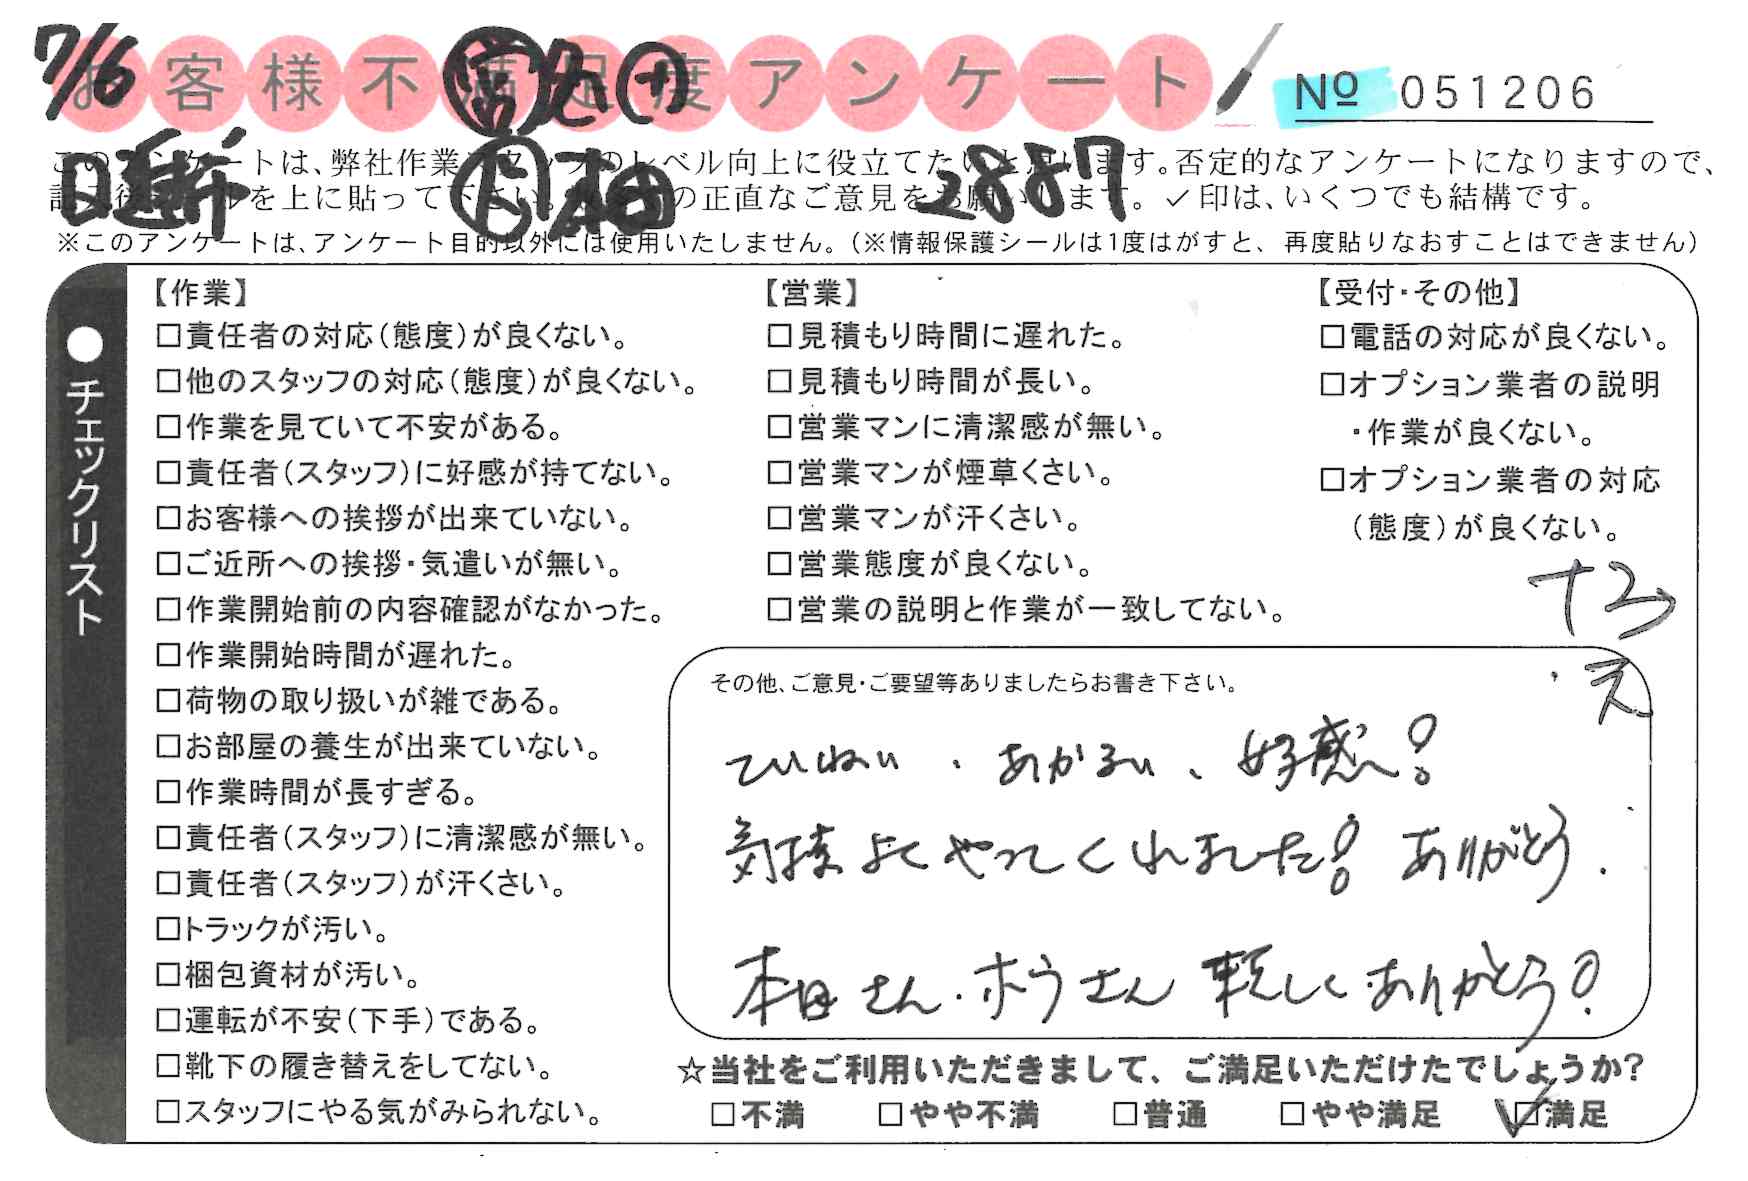 7/6
お客様不満足度アンケート
№ 051206
2887
このアンケートは、弊社作業スタッフのレベル向上に役立てたいと思います。否定的なアンケートになりますので、
を上に貼って下さい。の正直なご意見をお願いします。✓印は、いくつでも結構です。
※このアンケートは、アンケート目的以外には使用いたしません。(※情報保護シールは1度はがすと、再度貼りなおすことはできません)
●チェックリスト
【作業】
□責任者の対応(態度)が良くない。
□他のスタッフの対応(態度)が良くない。
□作業を見ていて不安がある。
□責任者(スタッフ)に好感が持てない。
□お客様への挨拶が出来ていない。
□ご近所への挨拶・気遣いが無い。
□作業開始前の内容確認がなかった。
□作業開始時間が遅れた。
□荷物の取り扱いが雑である。
□お部屋の養生が出来ていない。
□作業時間が長すぎる。
□責任者(スタッフ)に清潔感が無い。
□責任者(スタッフ)が汗くさい。
□トラックが汚い。
□梱包資材が汚い。
□運転が不安(下手)である。
□靴下の履き替えをしてない。
□スタッフにやる気がみられない。
【営業】
□見積もり時間に遅れた。
□見積もり時間が長い。
□営業マンに清潔感が無い。
□営業マンが煙草くさい。
□営業マンが汗くさい。
□営業態度が良くない。
□営業の説明と作業が一致してない。
【受付・その他】
□電話の対応が良くない。
□オプション業者の説明
・作業が良くない。
□オプション業者の対応
(態度)が良くない。
その他、ご意見・ご要望等ありましたらお書き下さい。
ていねい、あかるい、好感!
気持よくやってくれました! ありがとう.
本田さん.ホウさん 楽しくありがとう!
☆当社をご利用いただきまして、ご満足いただけたでしょうか?
□不満 □やや不満 □普通 □やや満足 ☑満足